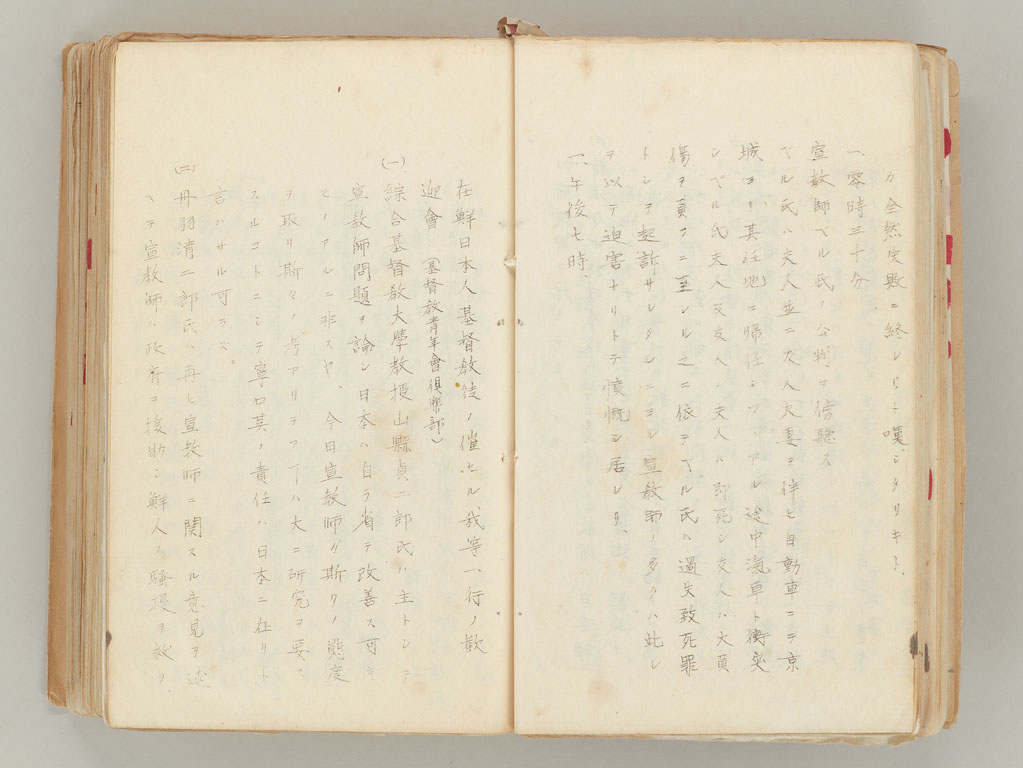 カ全然失敗ニ終レリト嘆シタリキト、
一、零時三十分
宣教師ベル氏ノ公判ヲ傍聽ス
ベル氏ハ夫人並ニ友人夫妻ヲ伴ヒ自動車ニテ京
城ヨリ其任地ニ帰任シツヽアル途中滊車ト衝突
シベル氏夫人及友人ノ夫人ハ即死シ友人ハ大負
傷ヲ負フニ至レル之ニ依テベル氏ハ過失致死罪
トシテ起訴サレタルニヨル宣教師ノ多クハ此レ
ヲ以テ迫害ナリトテ憤慨シ居レリ、
一、午後七時、
在鮮日本人基督敎徒ノ催セル我等一行ノ歓
迎會(基督敎青年會倶樂部)
(一)綜合基督敎大學敎授山縣貞二郎氏ハ主トシテ
宣敎師問題ヲ論シ日本ハ自ラ省テ改善ス可キ
モノアルニ非スヤ、今日宣敎師ガ斯クノ態度
ヲ取リ斯々ノ考アリテフ ハ大ニ研究ヲ要
スルコトニシテ寧ロ其ノ責任ハ日本ニ在リト
言ハサル可ラズ。
(二)丹羽清二郎氏ハ再ヒ宣教師ニ関スル意見ヲ述
ベテ宣教師ハ政府ヲ援助シ鮮人ノ騒擾ヲ救ヲ